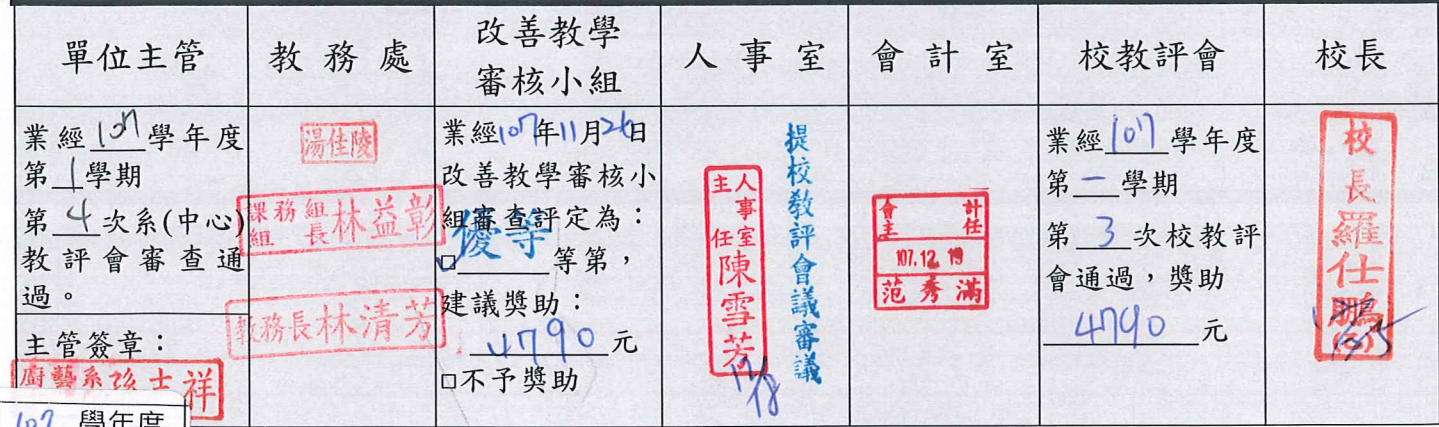 單位主管
教務處
改善教學
審核小組
人事室
會計室
校教評會
校長
業經107學年度
第1學期
第4次系(中心)
教評會審查通
過。
主管簽章：
廚藝系 士祥
107 學年度
湯佳陵
課務組
組長林益彰
教務長林清芳
業經107年11月26日
改善教學審核小
組審查評定為：
□優等等第，
建議獎助：
4790元
□不予獎助
人事室
主任陳雪芳
12/18
提校教評會議審議
會計
主任
107.12.19
范秀滿
業經107學年度
第一學期
第3次校教評
會通過，獎助
4790元
校長羅仕鵬